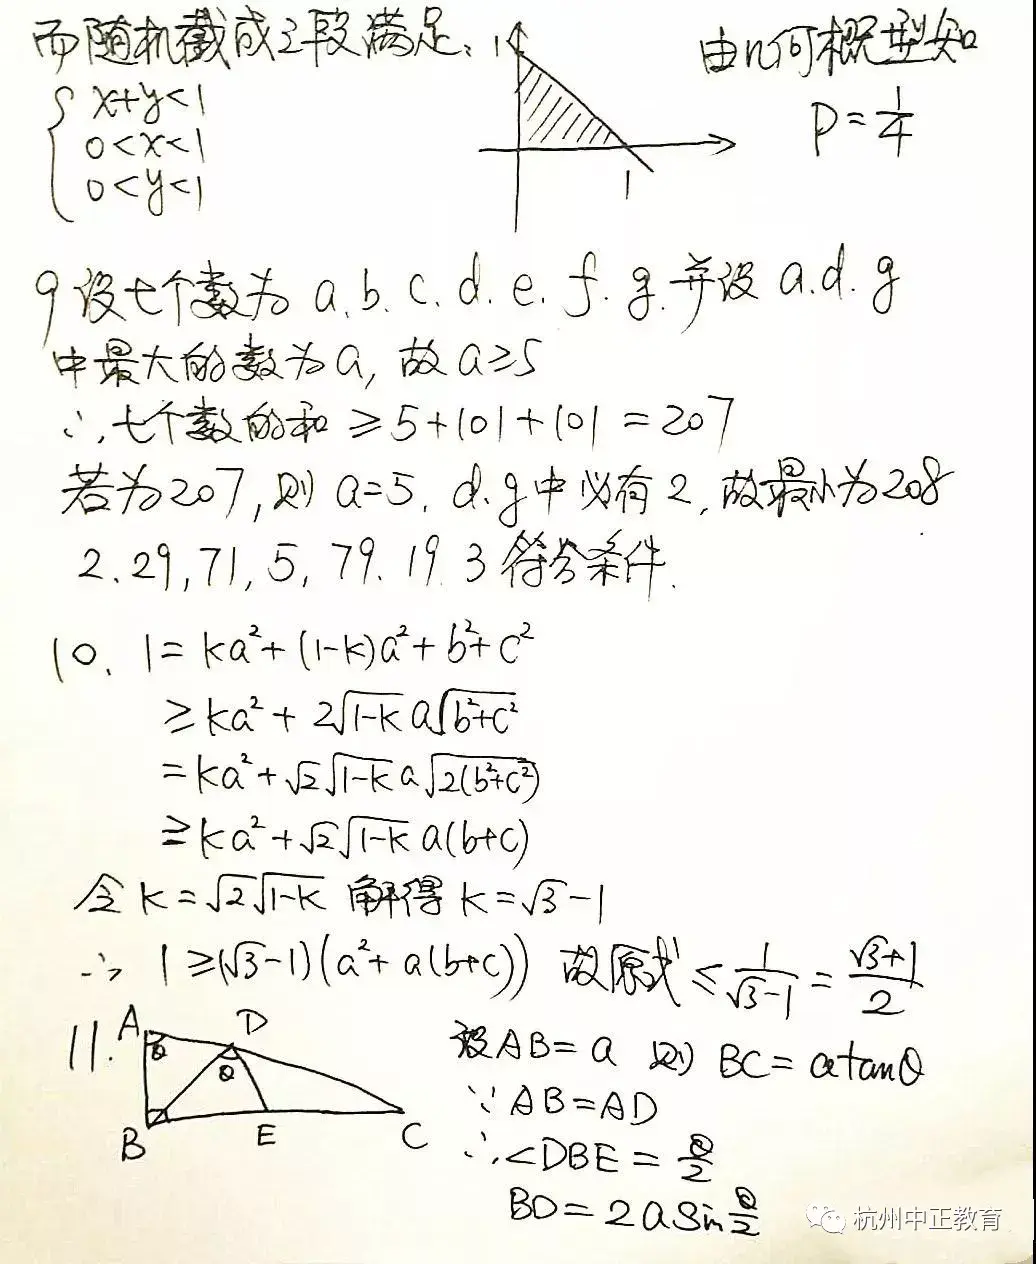 而随机截成三段满足: 1 由几何概型知
x+y<1
0<x<1
0<y<1
P=1/4
1
9 设七个数为 a.b.c.d.e.f.g.并设 a.d.g
中最大的数为a, 故a≥5
∴七个数的和≥5+101+101=207
若为207,则 a=5. d.g中必有2,故最小为208
2.29,71,5,79.19.3符合条件.
10. 1=ka²+(1-k)a²+b²+c²
≥ka²+2√(1-k) a√(b²+c²)
=ka²+√2√(1-k) a√(2(b²+c²))
≥ka²+√2√(1-k) a(b+c)
令k=√2√(1-k) 解得k=√3-1
∴ 1≥(√3-1)(a²+a(b+c)) 故原式≤1/(√3-1)=(√3+1)/2
11. A D θ θ B E C
设AB=a 则 BC=atanθ
∵AB=AD
∴∠DBE=θ/2
BD=2asinθ/2
杭州中正教育